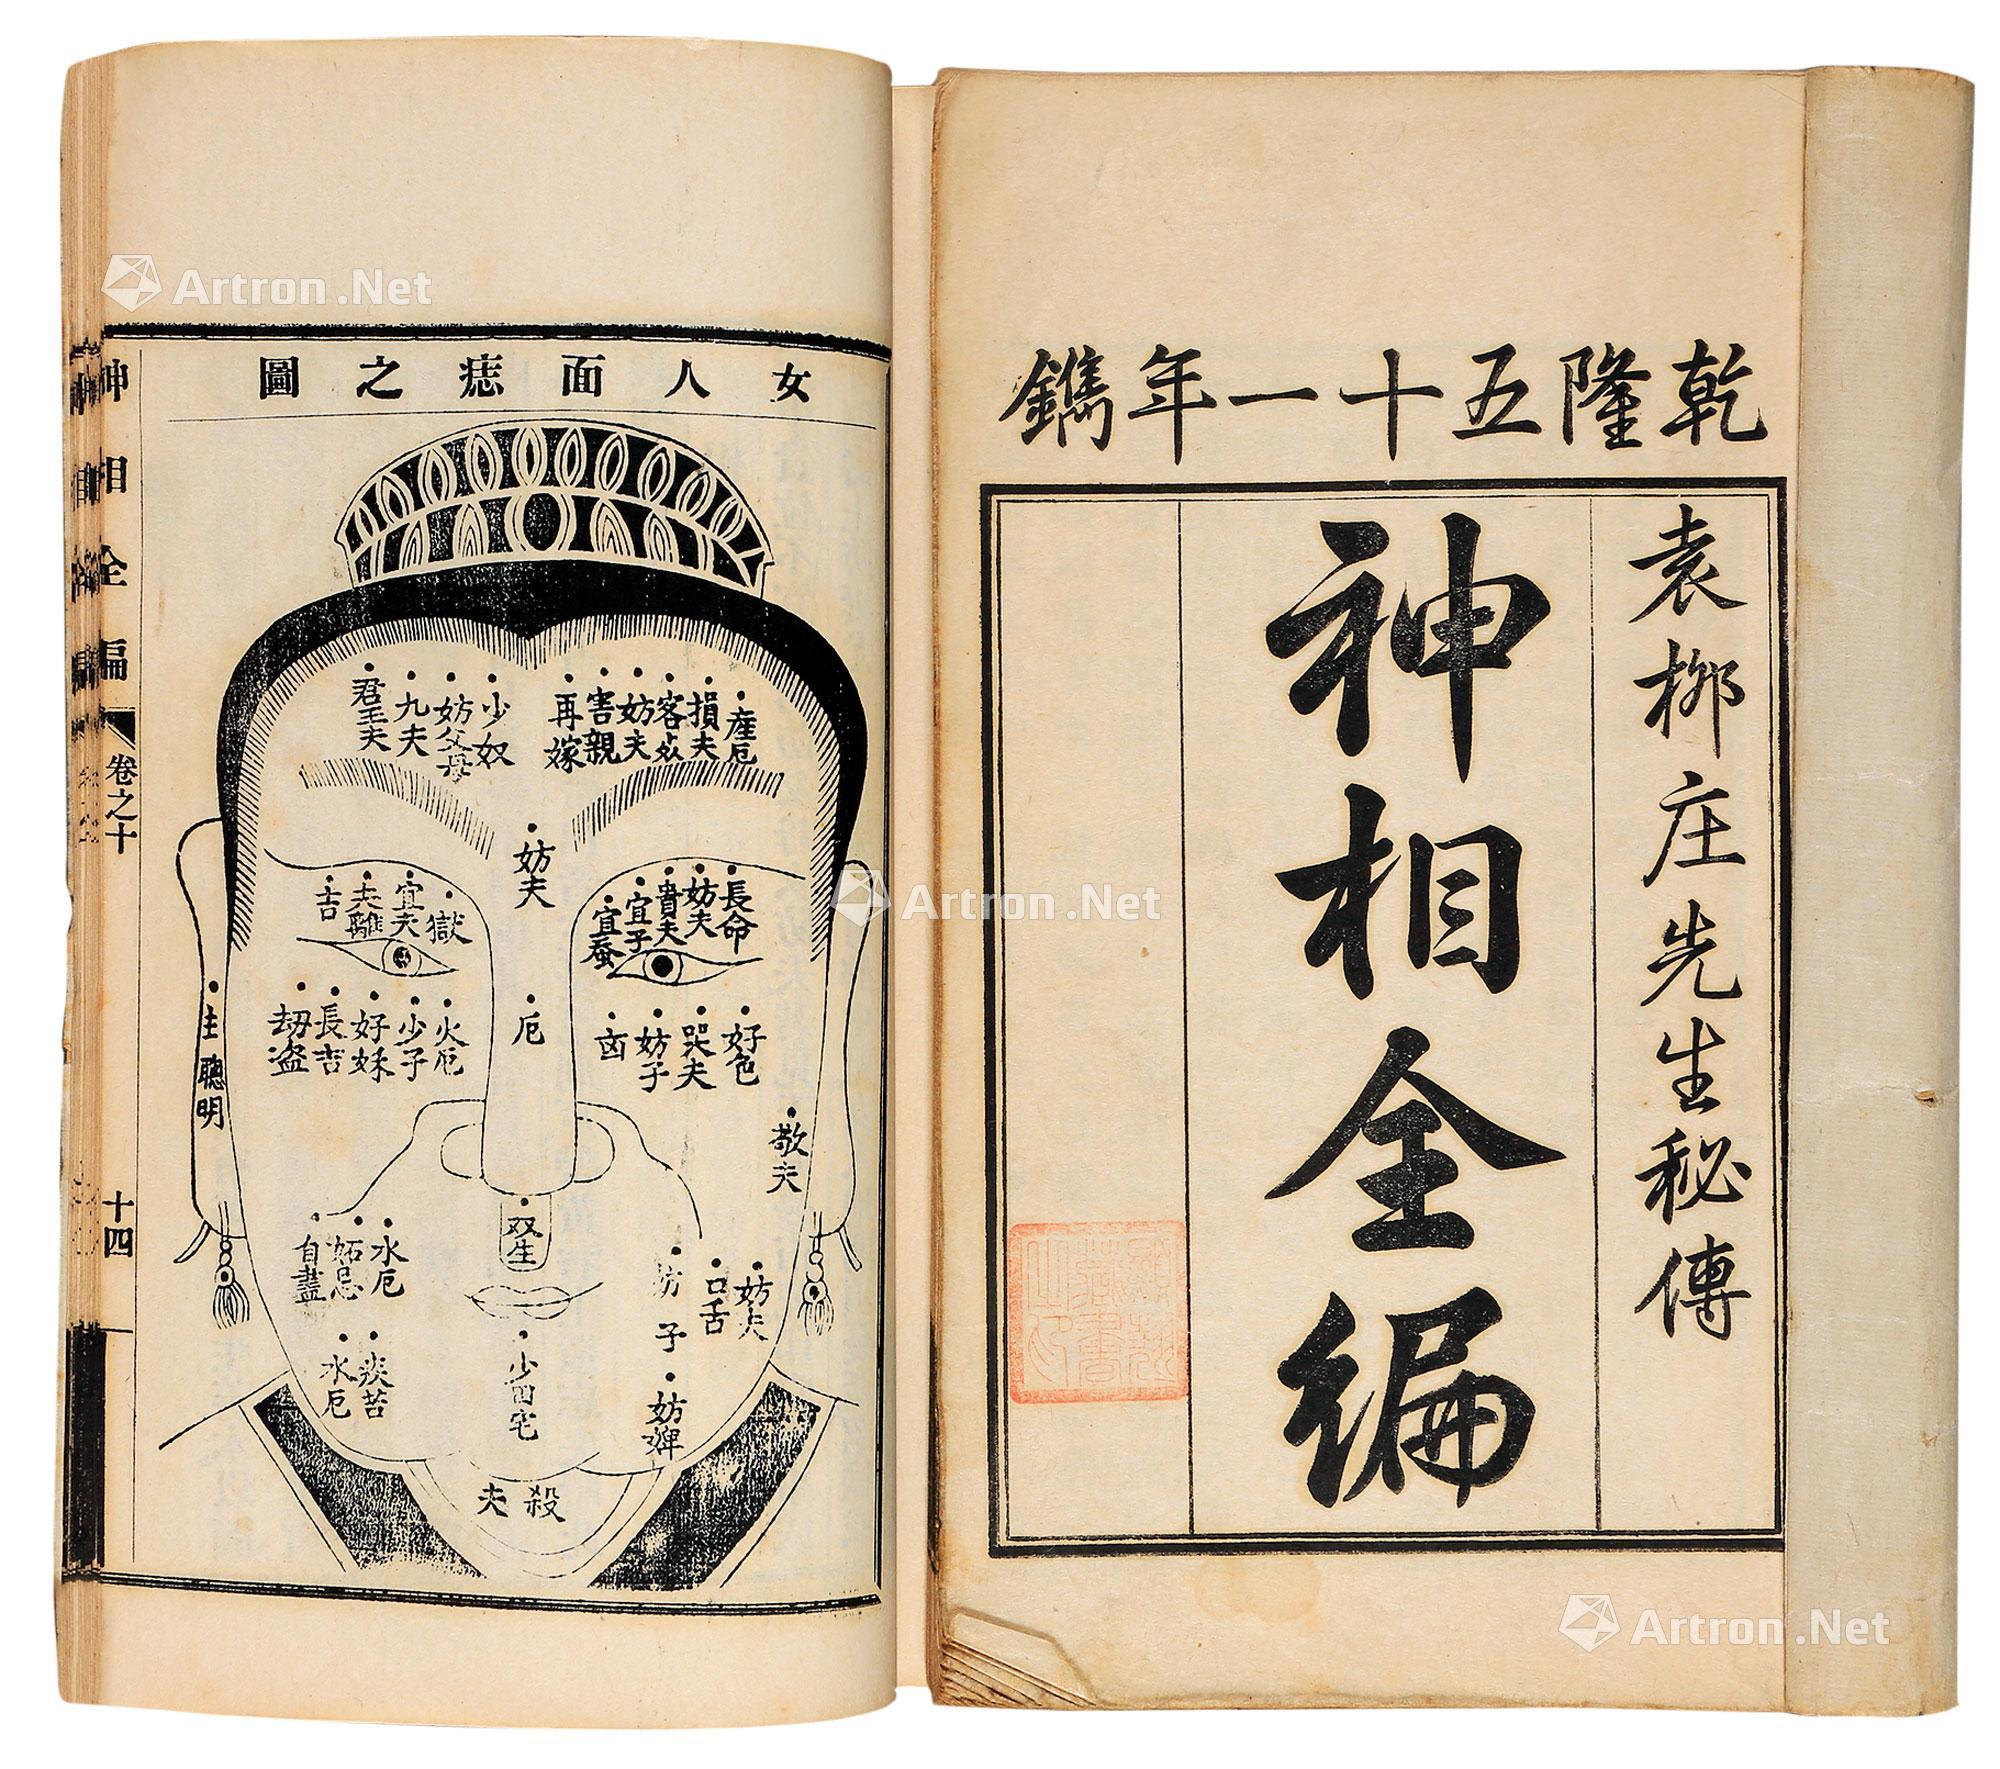 乾隆五十一年鐫
袁柳庄先生秘傳
神相全編
女人面痣之圖
神相全編
卷之十
十四
產厄
損夫
客死
妨夫
害親
再嫁
少奴
妨父母
九夫
君王夫
妨夫
長命
妨夫
貴夫
宜子
宜蚕
獄
宜夫
夫離
吉
厄
好色
哭夫
妨子
凶
火厄
少子
好妹
長吉
劫盗
主聰明
敬夫
双生
水厄
妬忌
自盡
妨夫
口舌
妨子
少田宅
妨婢
水厄
殺夫
Artron.Net
Artron.Net
Artron.Net